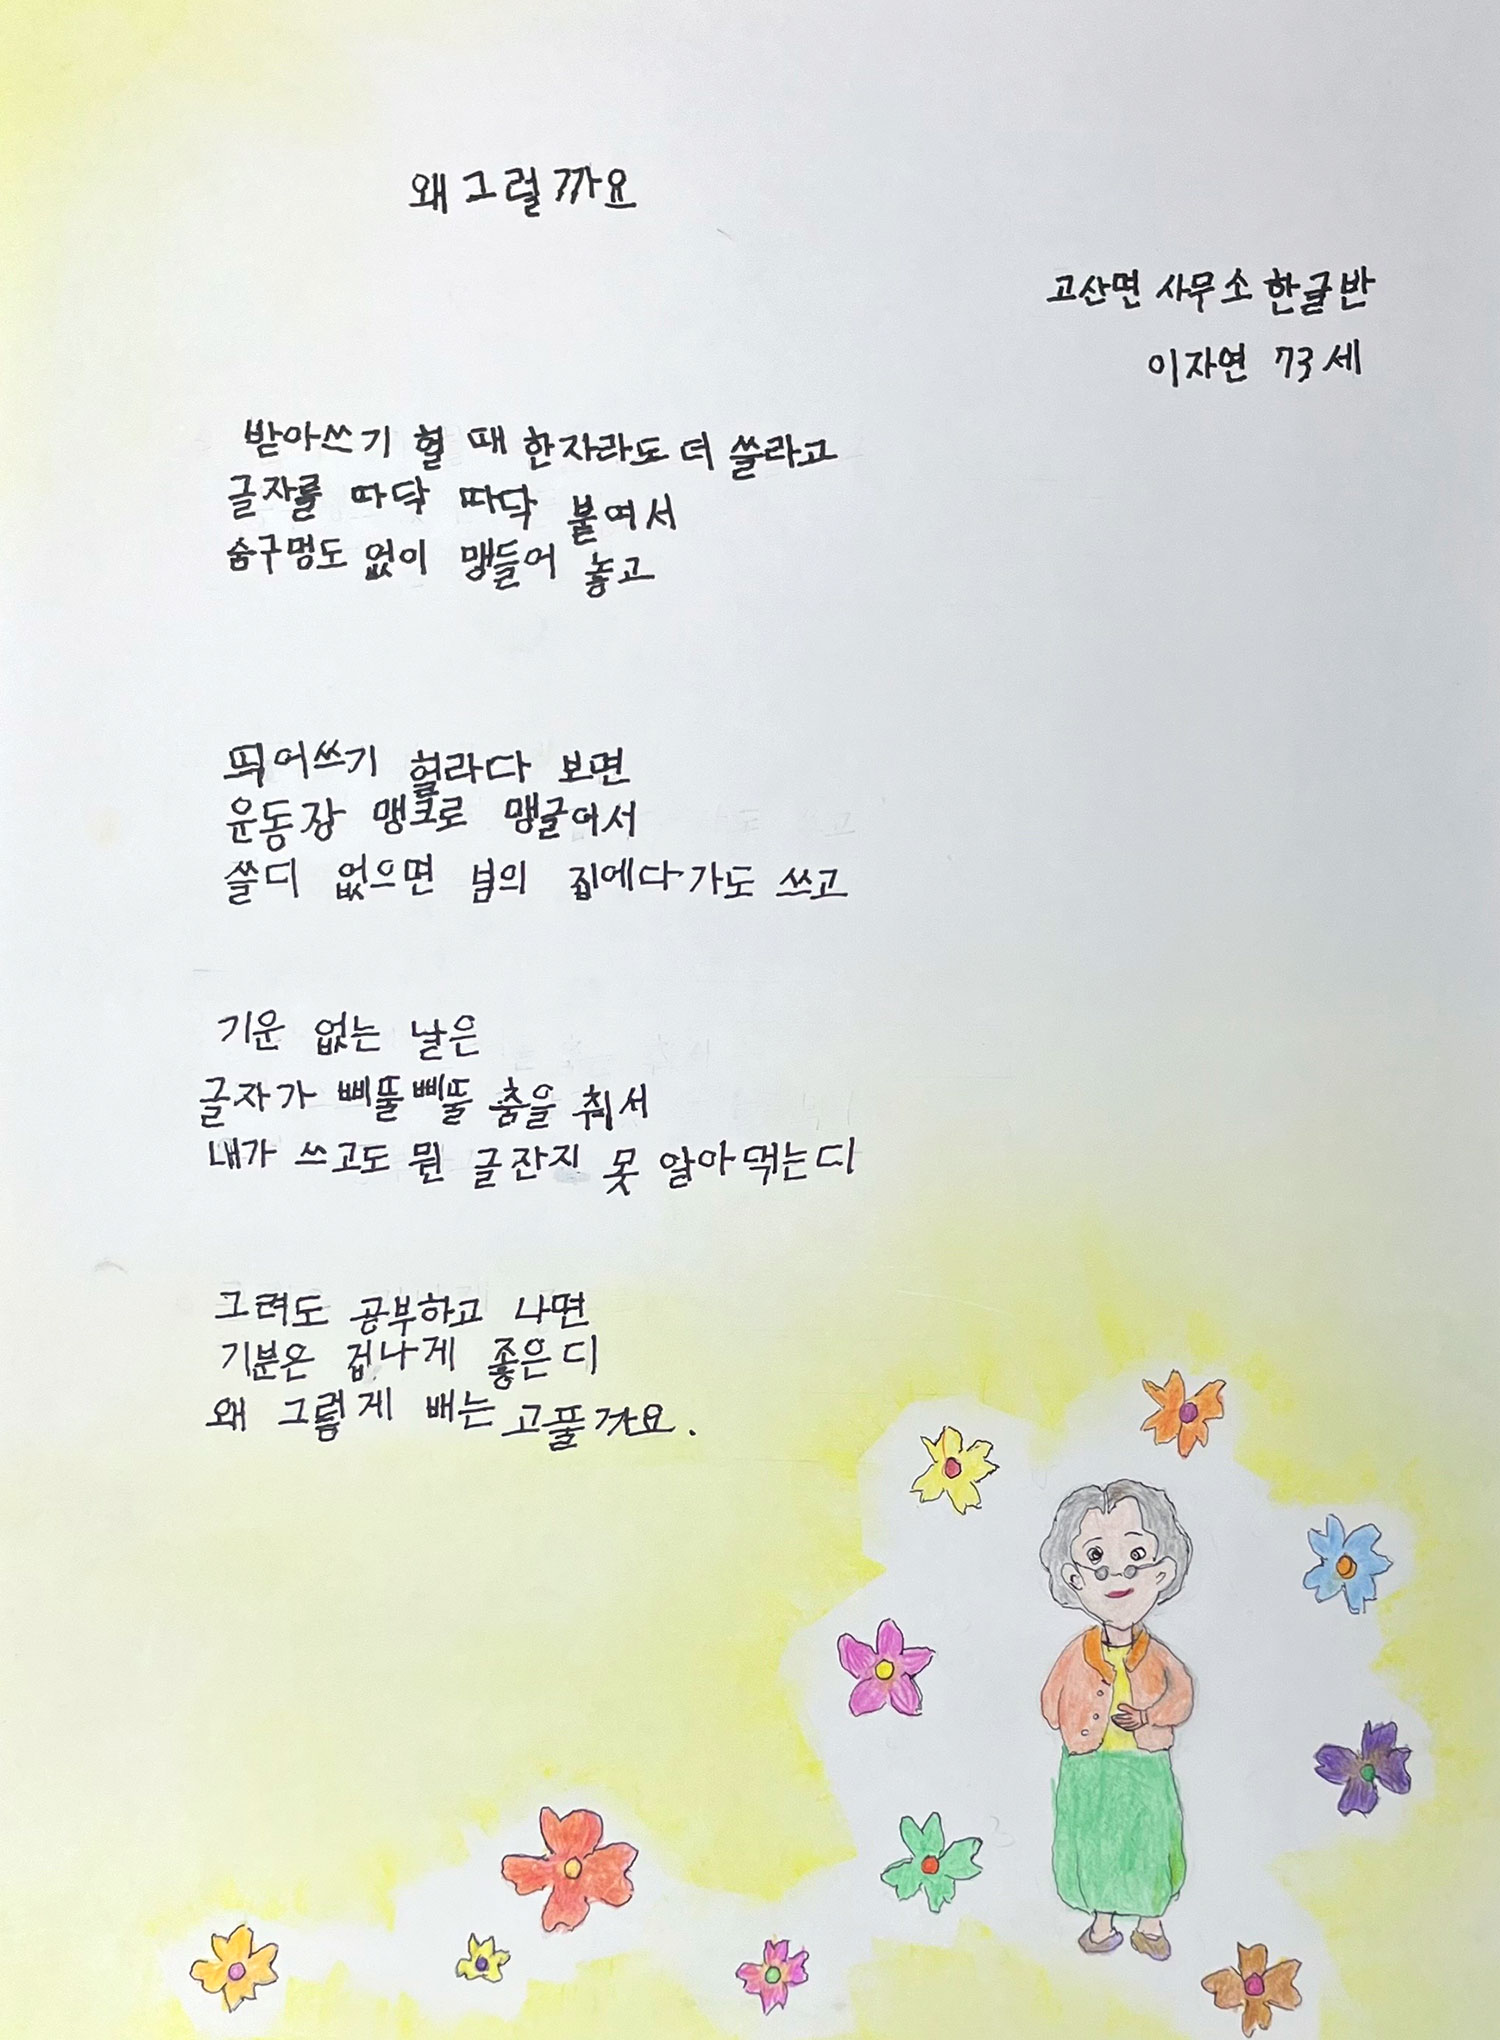 왜 그럴까요
고산면 사무소 한글반
이자연 73세
받아쓰기 헐 때 한자라도 더 쓸라고
글자를 따닥 따닥 붙여서
숨구멍도 없이 맹들어 놓고
띄어쓰기 헐라다 보면
운동장 맹크로 맹글어서
쓸디 없으면 넘의 집에다가도 쓰고
기운 없는 날은
글자가 삐뚤삐뚤 춤을 춰서
내가 쓰고도 뭔 글잔지 못 알아먹는디
그려도 공부하고 나면
기분은 겁나게 좋은디
왜 그렇게 배는 고풀까요.